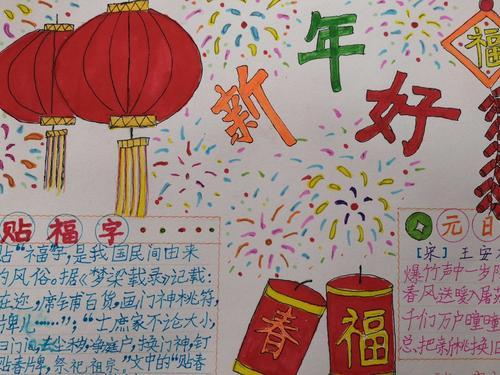 新年好
福
贴福字
贴“福”字,是我国民间由来
的风俗。据《梦梁载录》记载:
在迩,席铺百货,画门神桃符,
牌儿……”;“士庶家不论大小,
门闾去尘秽,净庭户,换门神,钉
贴春牌,祭祀祖宗”文中的“贴春
春
福
元日
[宋] 王安
爆竹声中一岁
春风送暖入屠
千门万户曈曈
总把新桃换旧